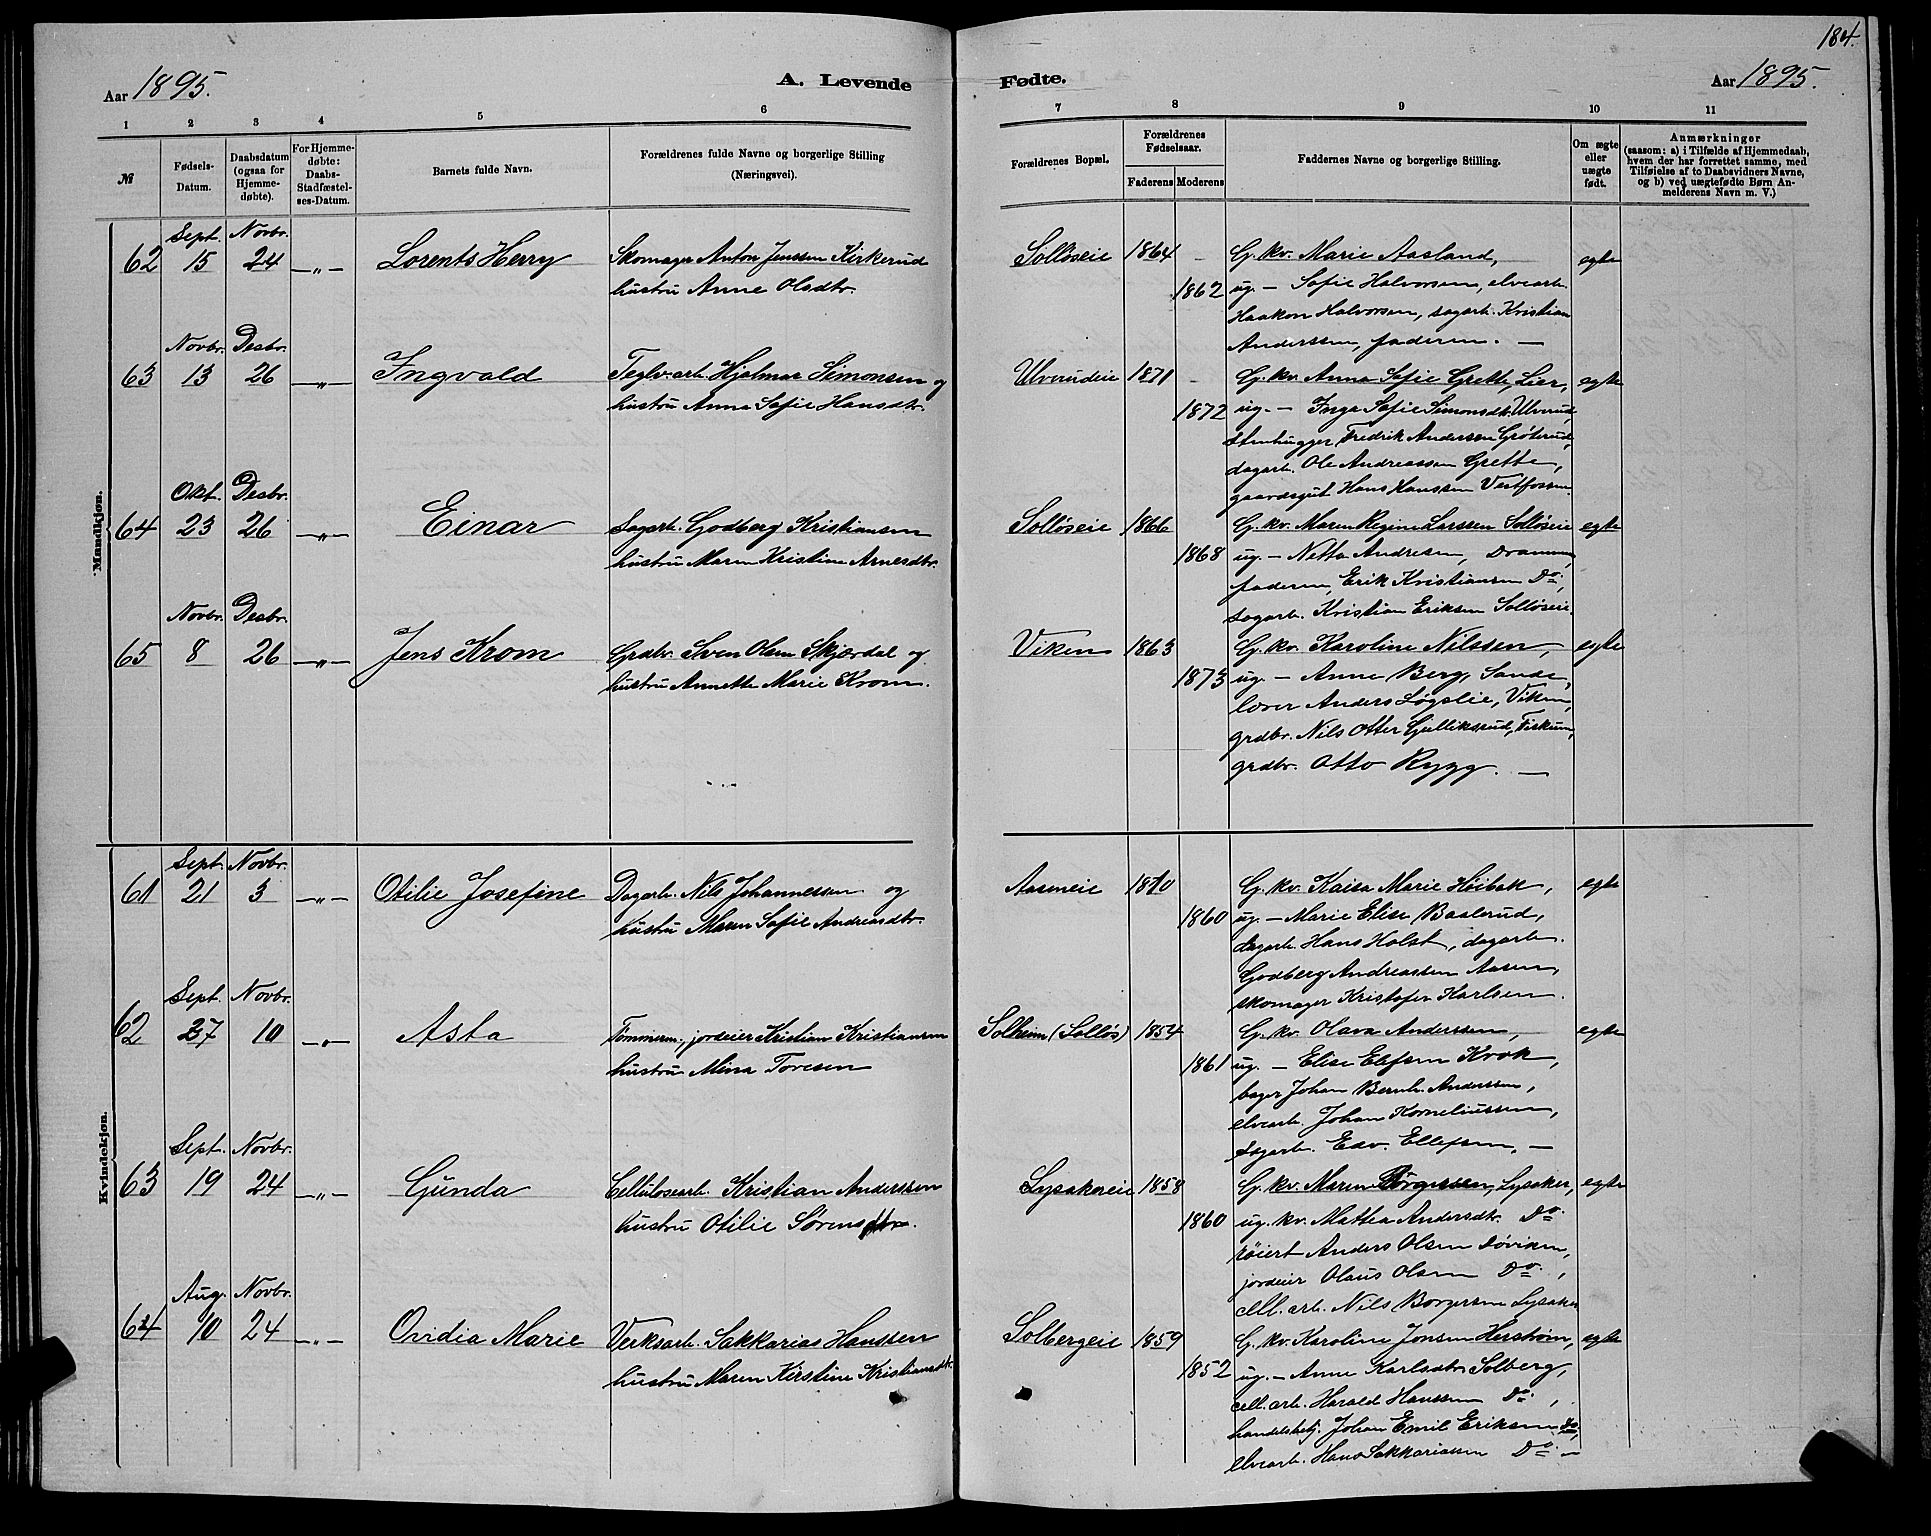 184.
Aar 1895.
A. Levende Fødte.
Aar 1895.
1 2 3 4 5 6 7 8 9 10 11
№
Fødsels-Datum.
Daabsdatum (ogsaa for Hjemme-døbte).
For Hjemme-døbte: Daabs-Stadfæstel-ses-Datum.
Barnets fulde Navn.
Forældrenes fulde Navne og borgerlige Stilling
(Næringsvei).
Forældrenes Bopæl.
Forældrenes Fødselsaar.
Faderens Moderens
Faddernes Navne og borgerlige Stilling.
Om ægte eller uægte født.
Anmærkninger
(saasom: a) i Tilfælde af Hjemmedaab,
hvem der har forrettet samme, med
Tilføielse af to Daabsvidners Navne,
og b) ved uægtefødte Børn An-
melderens Navn m. V.)
Mandkjøn.
Sept. Novbr.
62 15 24 -„- Lorents Herry Skomager Anton Jenssen Kirkerud Solløseie 1864 - G. kv. Marie Aasland, egte
hustru Anne Olsdtr. 1862 ug. - Sofie Halvorsen, elvearb.
Haakon Halvorsen, sagarb. Kristian
Anderssen, faderen. -
Novbr. Desbr.
63 13 26 -„- Ingvald Teglv.arb. Hjalmar Simonsen og Ulverudeie 1871 - G. kv. Anna Sofie Grette, Lier, egte
hustru Anna Sofie Hansdtr. 1872 ug. - Inga Sofie Simonsdt. Ulverud,
stenhugger Fredrik Andersen Grøterud,
dagarb. Ole Andreassen Grette,
gaardsgut Hans Hanssen Vestfossen
Okt. Desbr.
64 23 26 -„- Einar Sagarb. Godberg Kristiansen Solløseie 1866 G. kv. Maren Regine Larssen Solløseie egte
hustru Maren Kristine Arnesdtr. 1868 ug. - Netta Andresen, Drammen,
faderen, Erik Kristiansen Do,
sagarb. Kristian Eriksen Solløseie.
Novbr. Desbr.
65 8 26 -„- Jens Krom Grdbr. Sven Olsen Skjærdal og Viken 1863 G. kv. Karoline Nilssen, egte
hustru Annette Marie Krom. 1873 ug. - Anne Berg, Sande,
lærer Anders Løgslie, Viken,
grdbr. Nils Otter Gulliksrud, Fiskum,
grdbr. Otto Rygg. -
Kvindekjøn.
Sept. Novbr.
61 21 3 -„- Otilie Josefine Dagarb. Nils Johannessen og Aaseneie 1870 G. kv. Kaisa Marie Høibak, egte
hustru Maren Sofie Andreasdtr. 1860 ug. - Marie Elise Baslerud,
dagarb. Hans Holst, dagarb.
Godberg Andreassen Aasen,
skomager Kristofer Karlsen.
Sept. Novbr.
62 27 10 -„- Asta Tømmerm., jordeier Kristian Kristiansen Solheim (Solløs) 1854 G. kv. Olava Anderssen, egte
hustru Mina Toresen 1861 ug. - Elise Elefsen Krok,
bager Johan Bernh. Anderssen,
elvearb. Johan Korneliussen,
sagarb. Edv. Ellefsen, -
Sept. Novbr.
63 19 24 -„- Gunda Cellulosearb. Kristian Anderssen Lysakereie 1858 G. kv. Maren Børgersen, Lysaker, egte
hustru Otilie Sørensdtr. 1860 ug. kv. Mattea Andersdtr. Do
røiert Anders Olsen Døviken,
jordeier Olaus Olsen Do,
cell. arb. Nils Borgersen Lysaker
Aug. Novbr.
64 10 24 -„- Ovidia Marie Verksarb. Sakkarias Hanssen Solbergeie 1859 G. kv. Karoline Jonsen Herstrøm, egte
hustru Maren Kirstine Kristiansdt. 1852 ug. - Anne Karlsdtr. Solberg,
cell. arb. Harald Hanssen Do,
handelsbetj. Johan Emil Eriksen Do,
elvearb. Hans Sakkariassen Do -